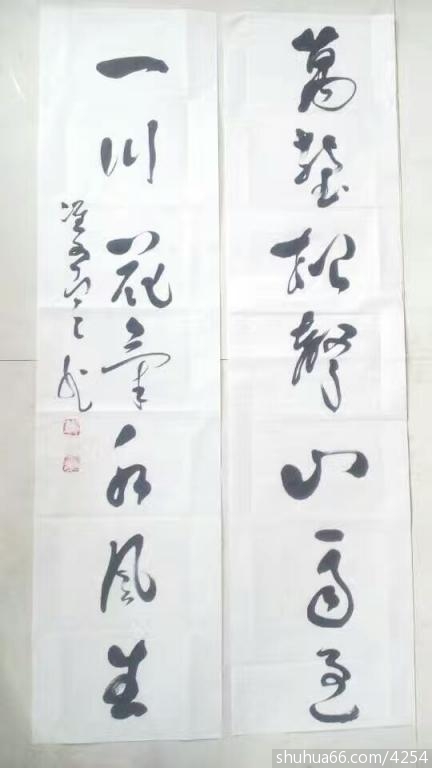 萬壑松聲山雨過
一川花氣水風生
shuhua66.com/4254